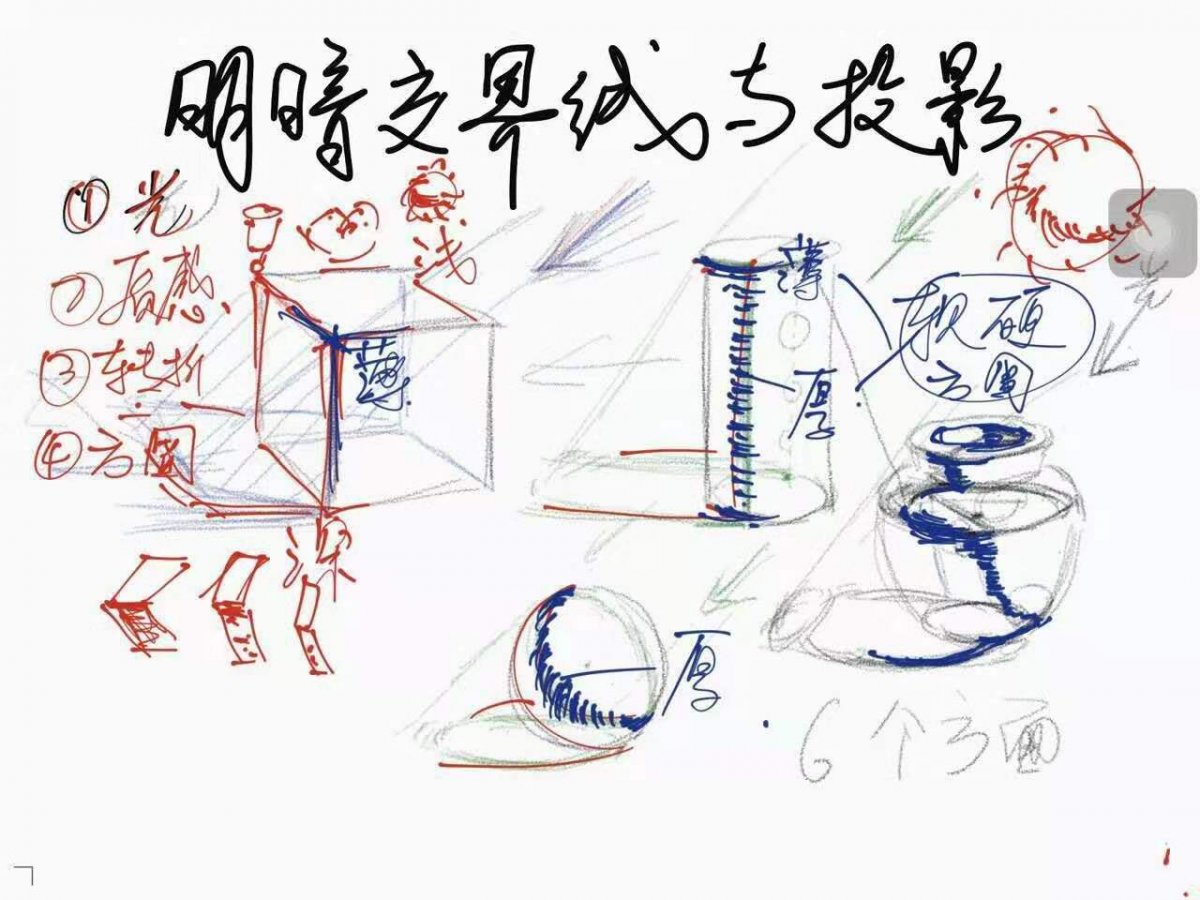 明暗交界线与投影
① 光
② 质感、
③ 转折
④ 方圆
浅
薄
深
薄
厚
软硬
方圆
光
厚
6个方面